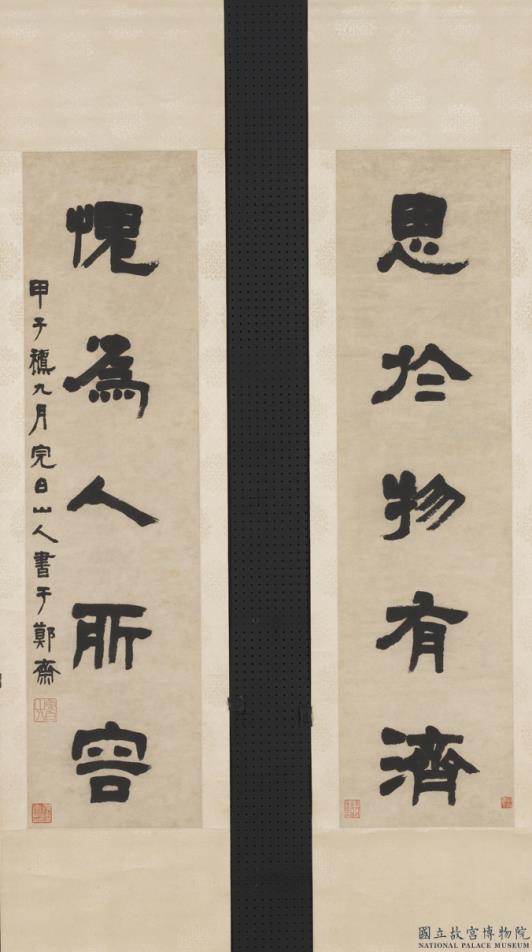 思於物有濟
愧為人所容
甲子穐九月完白山人書于鄭齋
國立故宮博物院
NATIONAL PALACE MUSEUM